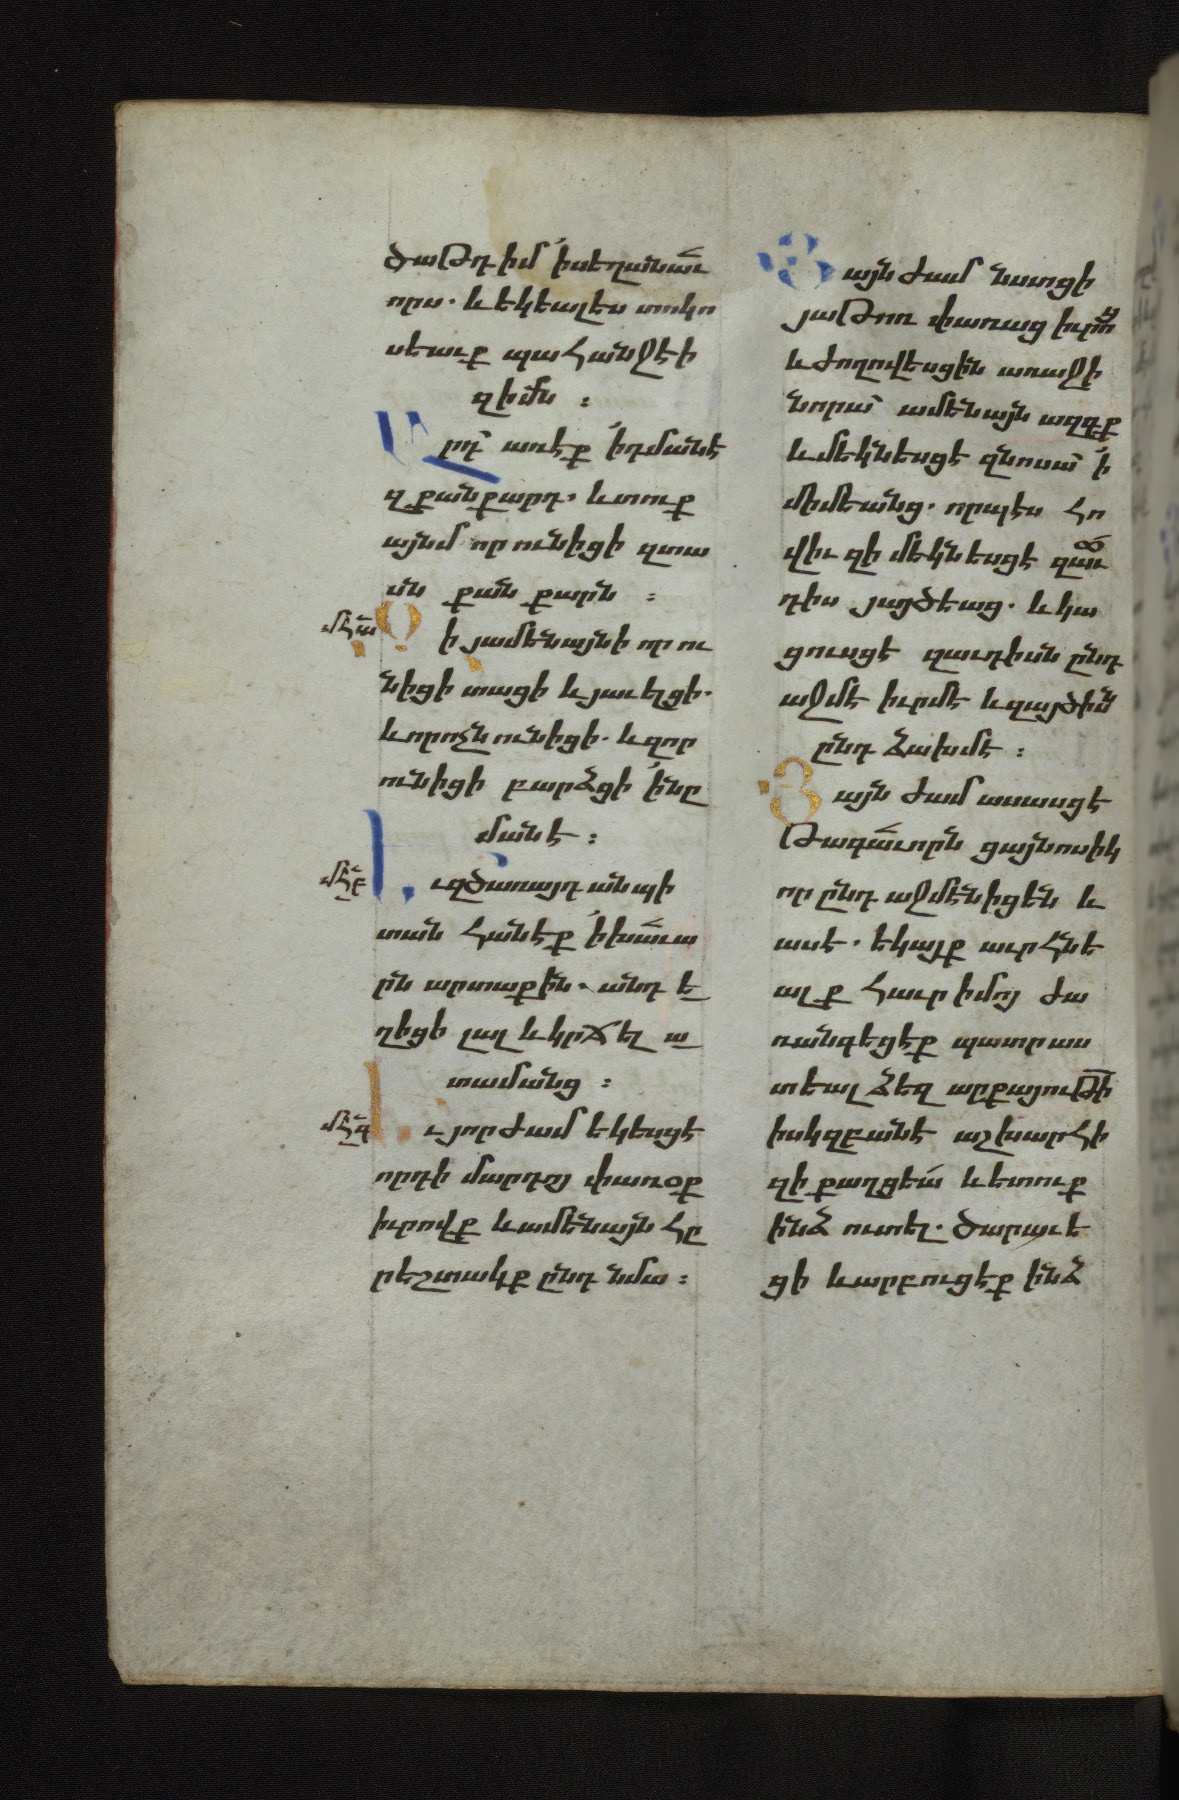 ծաթդ իմ ի սեղանաւ
որս. և եկեալ ես տոկո
սեաւք պահանջէի
զիմն :
Արդ առէք ի դմանէ
զքանքարդ. և տուք
այնմ որ ունիցի զտա
սն քանքարն :
մՀա
Զի յամենայնի որ ու
նիցի տացի և յաւելցի.
և որ ոչն ունիցի. և զոր
ունիցի բարձցի ի նը
մանէ :
մՀբ
Եւ զծառայդ անպի
տան հանէք ի խաւա
րն արտաքին. անդ ե
ղիցի լալ և կրճել ա
տամանց :
մՀգ
Եւ յորժամ եկեսցէ
որդի մարդոյ փառօք
իւրովք և ամենայն հը
րեշտակք ընդ նմա :
Յայնժամ նստցի
յաթոռ փառաց իւրոց
և ժողովեսցին առաջի
նորա ամենայն ազգք
և մեկնեսցէ զնոսա ի
միմեանց. որպէս հո
վիւ զի մեկնեսցէ զաւ
դիս յայծեաց. և կա
ցուսցէ զաւդիսն ընդ
աջմէ իւրմէ և զայծին
ընդ ձախմէ :
Յայնժամ ասասցէ
թագաւորն ցայնոսիկ
որ ընդ աջմէն իցեն և
ասէ. եկայք աւրհնե
ալք հաւր իմոյ ժա
ռանգեցէք պատրաս
տեալ ձեզ արքայութի
ի սկզբանէ աշխարհի
զի քաղցեա և ետուք
ինձ ուտել. ծարաւե
ցի և արբուցէք ինձ